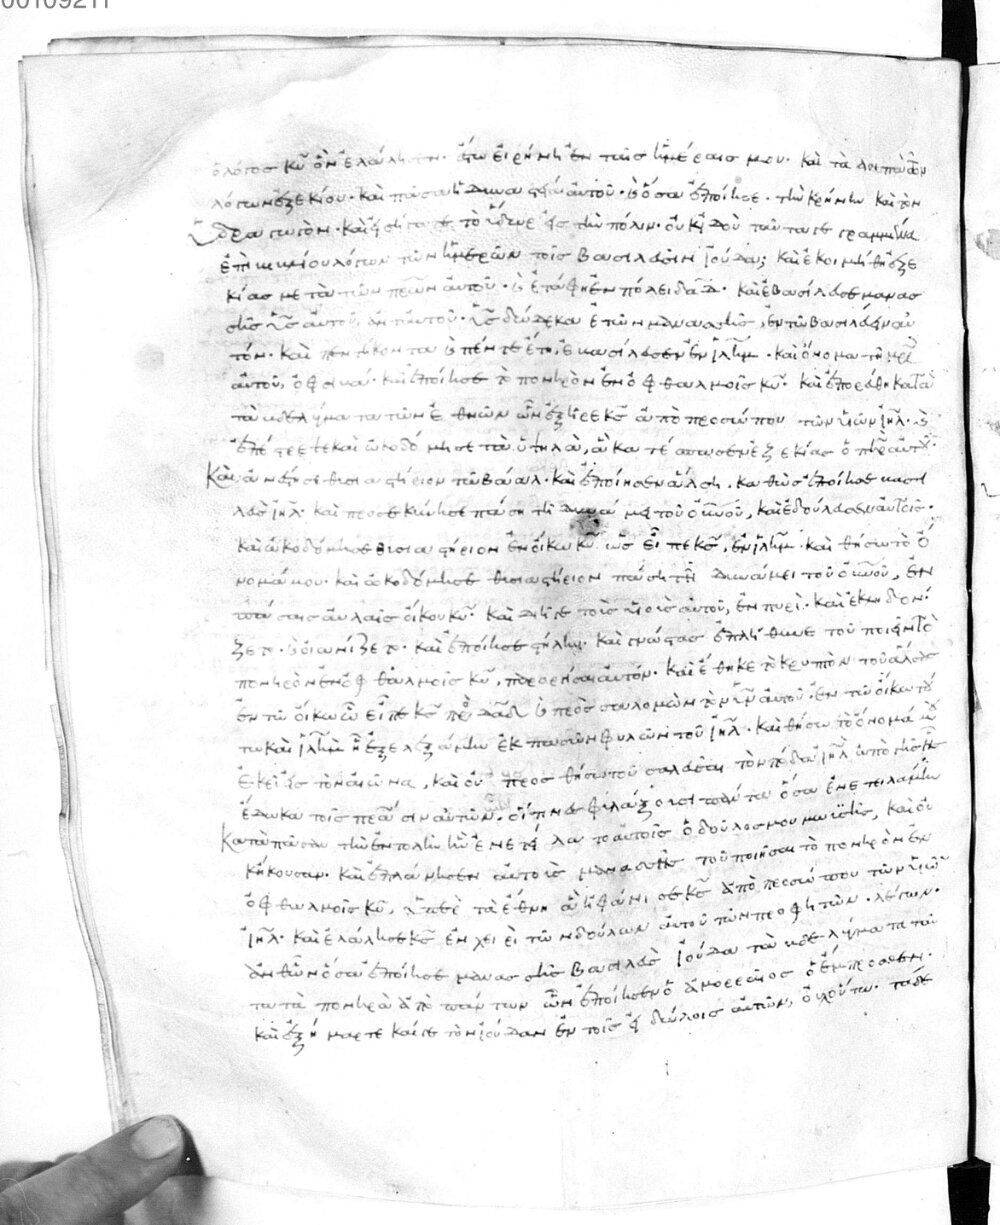 00109211
ὁ λόγος κυ ὃν ἐλάλησεν. ἔστω εἰρήνη ἐν ταῖς ἡμέραις μου. καὶ τὰ λοιπὰ τῶν
λόγων ἐξεκίου. καὶ πᾶσα ἡ δυναστεία αὐτοῦ. ὅσα ἐποίησε. τὴν κρήνην καὶ τὸν
ὑδραγωγόν. καὶ εἰσήγαγε τὸ ὕδωρ εἰς τὴν πόλιν. οὐκ ἰδοὺ ταῦτα γεγραμμένα
ἐπὶ βιβλίου λόγων τῶν ἡμερῶν τοῖς βασιλεῦσιν ἰούδα; καὶ ἐκοιμήθη ἐζε
κίας μετὰ τῶν πρων αὐτοῦ. καὶ ἐτάφη ἐν πόλει δαδ. καὶ ἐβασίλευσε μανασ
σῆς υς αὐτοῦ ἀντ' αὐτοῦ. υς δώδεκα ἐτῶν μανασσῆς, ἐν τῶ βασιλεύειν αὐ
τόν. καὶ πεντήκοντα καὶ πέντε ἔτη, ἐβασίλευσεν ἐν ιλημ. καὶ ὄνομα τῆ μρι
αὐτοῦ, ὀψιβά. καὶ ἐποίησε τὸ πονηρὸν ἐν ὀφθαλμοῖς κυ. καὶ ἐπορεύθη κατὰ
τὰ βδελύγματα τῶν ἐθνῶν ὧν ἐξῆρε κς ἀπὸ προσώπου τῶν υἱῶν ιηλ. καὶ
ἐπέστρεψε καὶ ὠκοδόμησε τὰ ὑψηλὰ, ἃ κατέσπασεν ἐξεκίας ὁ πηρ αὐτοῦ.
Καὶ ἀνέστησε θυσιαστήριον τῶ βάαλ. καὶ ἐποίησεν ἄλση. καθὼς ἐποίησε βασι
λεὺς ιηλ. καὶ προσεκύνησε πάση τῆ δυνάμει τοῦ οὐνοῦ, καὶ ἐδούλευσεν αὐτοῖς.
καὶ ὠκοδόμησε θυσιαστήριον ἐν οἴκω κυ. ὡς εἶπε κς, ἐν ιλημ. καὶ θήσω τὸ ὄ
νομά μου. καὶ ὠκοδόμησε θυσιαστήριον πάση τῆ δυνάμει τοῦ οὐνοῦ, ἐν
πάσαις αὐλαῖς οἴκου κυ. καὶ διῆγε τοὺς υἱοὺς αὐτοῦ, ἐν πυρί. καὶ ἐκληδονί
ζετο. καὶ οἰωνίζετο. καὶ ἐποίησε τήλην. καὶ γνώστας ἐπλήθυνε τοῦ ποιεῖν τὸ
πονηρὸν ἐν ὀφθαλμοῖς κυ, παροργίσαι αὐτόν. καὶ ἔθηκε τὸ κρυπτὸν τοῦ ἄλσους
ἐν τῶ οἴκω ὧ εἶπε κς πρὸς δαδ καὶ πρὸς σολομῶντα τὸν υν αὐτοῦ. ἐν τῶ οἴκω τού
τω καὶ ιλημ ἣ ἐξελεξάμην ἐκ πασῶν φυλῶν τοῦ ιηλ. καὶ θήσω τὸ ὄνομά μου
ἐκεῖ εἰς τὸν αἰῶνα, καὶ οὐ προσθήσω τοῦ σαλεῦσαι τὸν πόδα ιηλ ἀπὸ τῆς γῆς ἧς
ἔδωκα τοῖς πράσιν αὐτῶν. οἵτινες φυλάξουσι πάντα ὅσα ἐνετειλάμην
Κατὰ πᾶσαν τὴν ἐντολὴν ἣν ἐνετείλατο αὐτοῖς ὁ δοῦλός μου μωϋσῆς, καὶ οὐ
κ ἤκουσαν. καὶ ἐπλάνησεν αὐτοὺς μανασσῆς τοῦ ποιῆσαι τὸ πονηρὸν ἐν
ὀφθαλμοῖς κυ, ὑπὲρ τὰ ἔθνη ἃ ἠφάνισε κς ἀπὸ προσώπου τῶν υἱῶν
ιηλ. καὶ ἐλάλησε κς ἐν χειρὶ τῶν δούλων αὐτοῦ τῶν προφητῶν. λέγων.
ἀνθ' ὧν ὅσα ἐποίησε μανασσῆς βασιλεὺς ἰούδα τὰ βδελύγματα ταῦ
τα τὰ πονηρὰ ἀπὸ πάντων ὧν ἐποίησεν ὁ ἀμορραῖος ὁ ἔμπροσθεν.
καὶ ἐξήμαρτε καί γε τὸν ἰούδαν ἐν τοῖς εἰδώλοις αὐτῶν, οὐχ οὕτω. τάδε